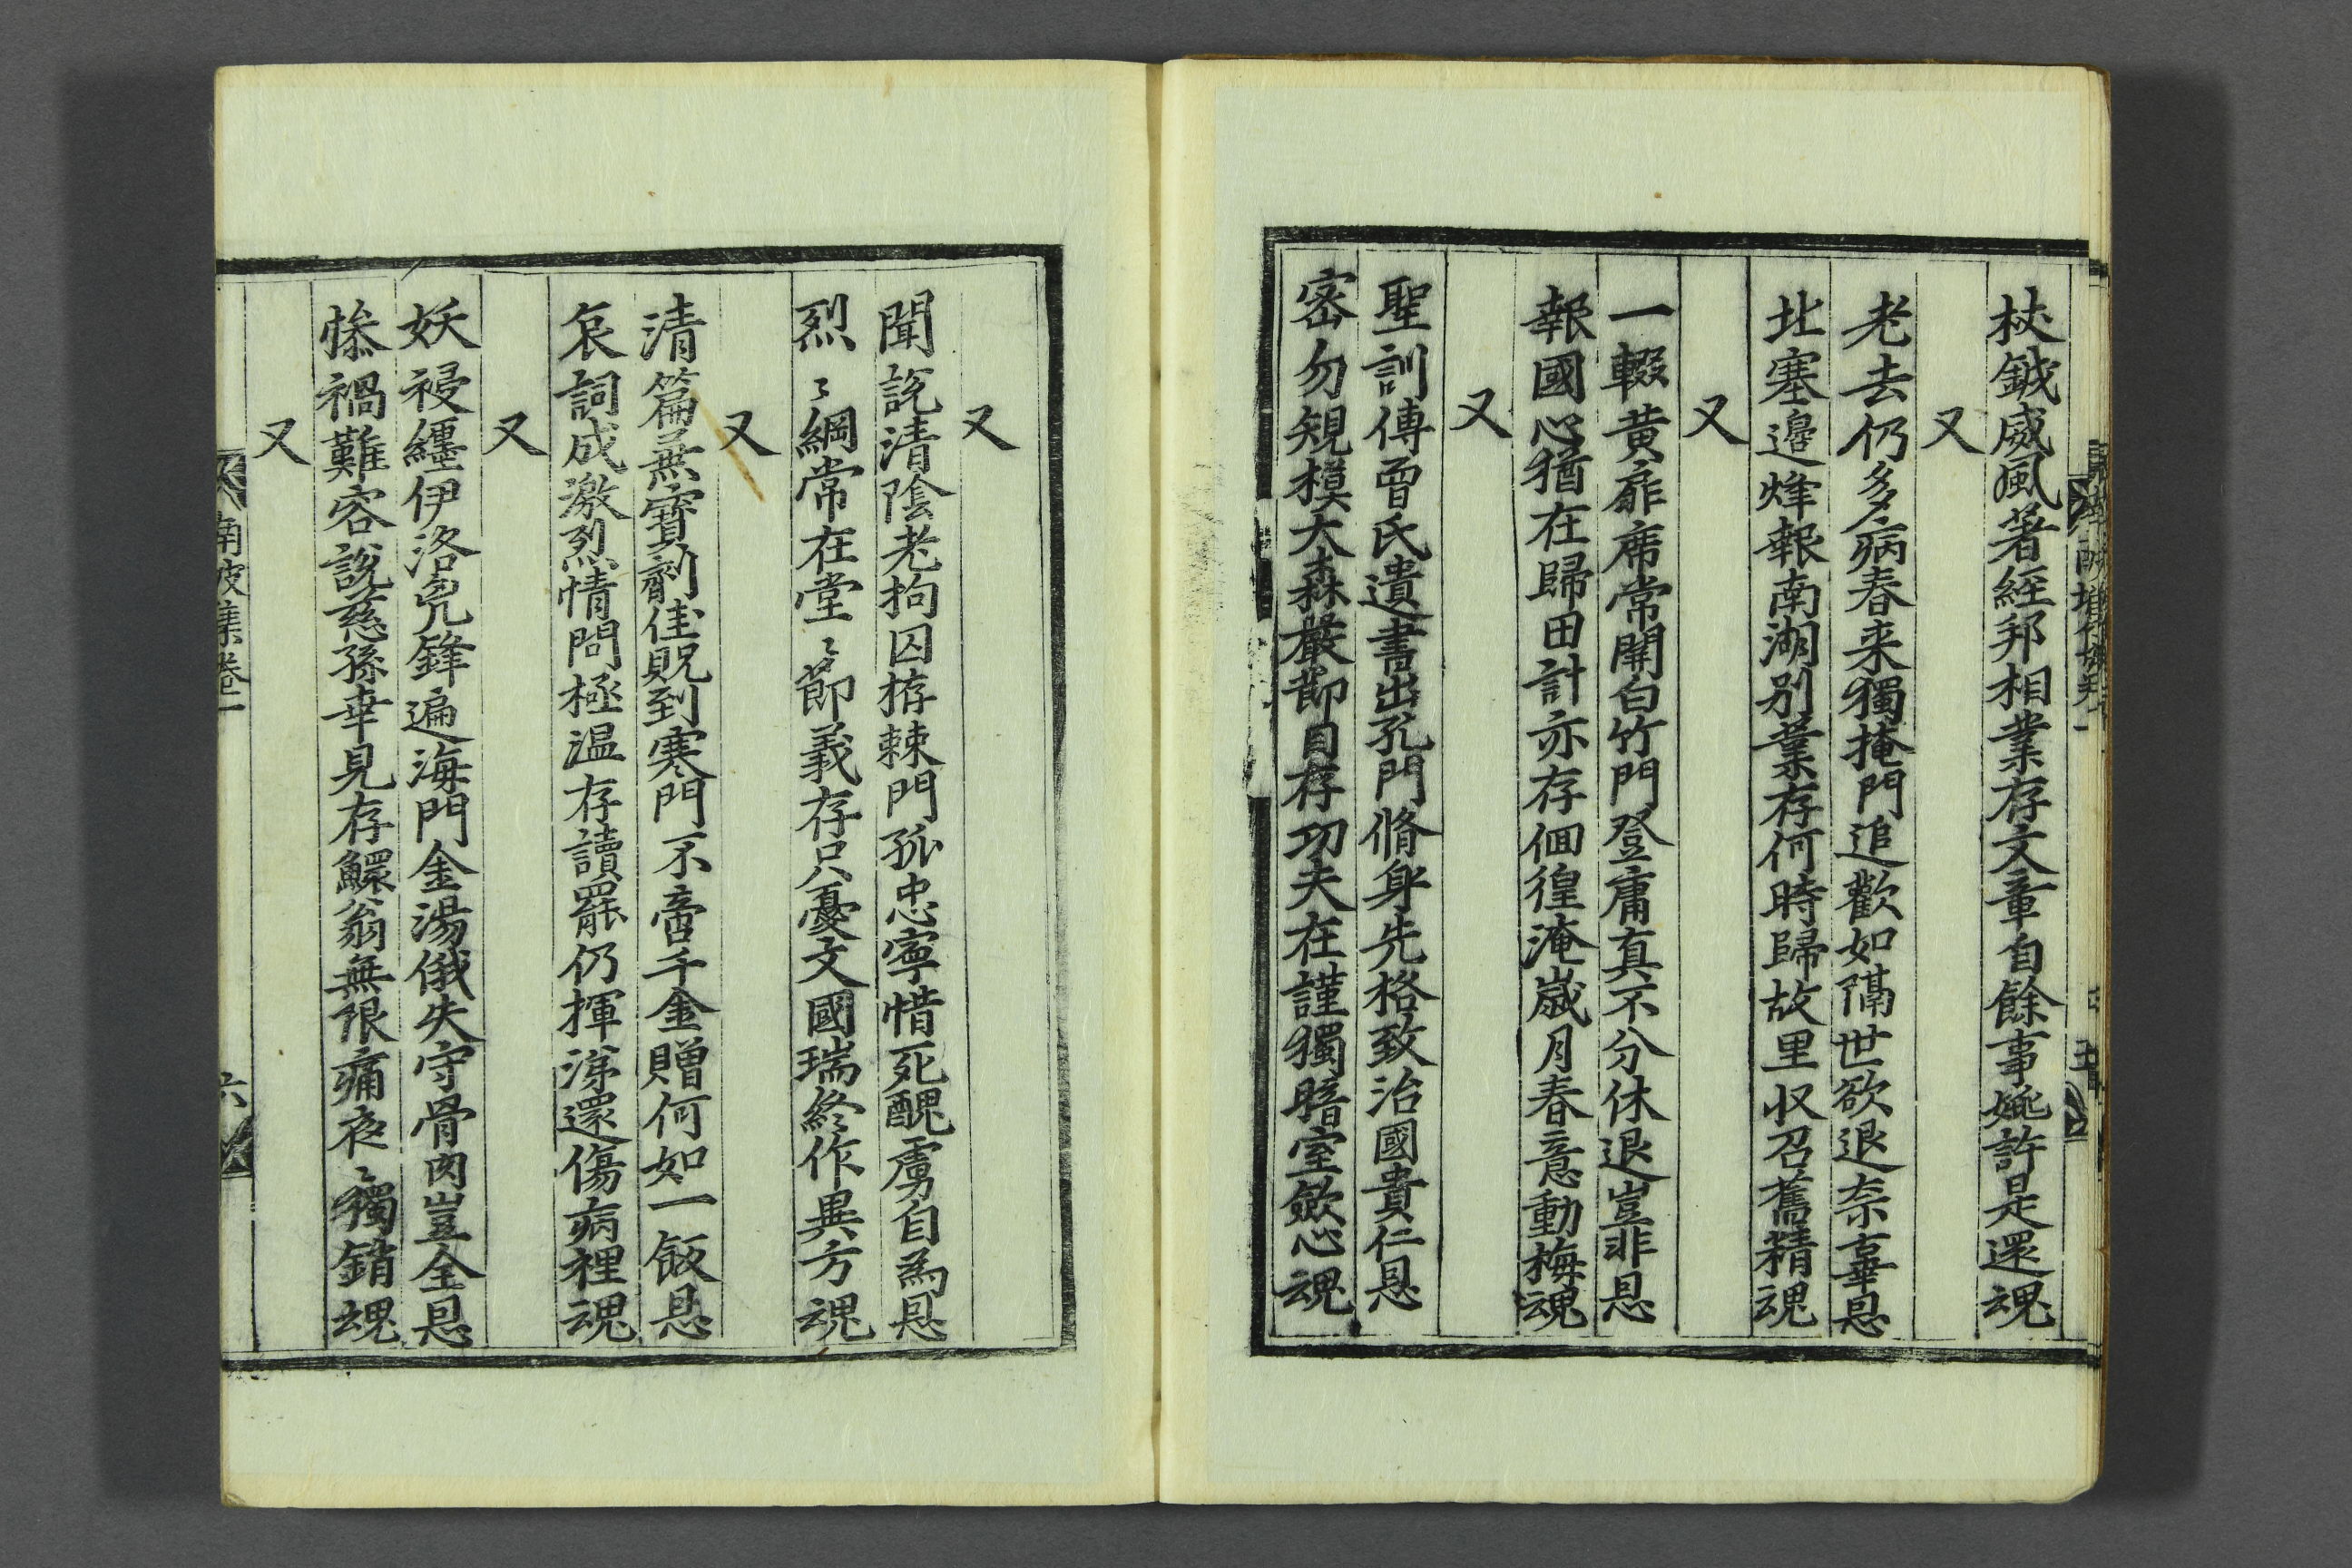 杖鉞威風著經邦相業存文章自餘事婉許是還魂
又
老去仍多病春来獨掩門追歡如隔世欲退奈辜恩
北塞邊烽報南湖別業存何時歸故里収召舊精魂
又
一輟黄扉席常開白竹門登庸真不分休退豈非恩
報國心猶在歸田計亦存佪徨淹歲月春意動梅魂
又
聖訓傳曾氏遺書出孔門脩身先格致治國貴仁恩
宻勿規模大森嚴節目存功夫在謹獨暗室歛心魂
又
聞說清陰老拘囚栫棘門孤忠寧惜死醜虜自為恩
烈〻綱常在堂〻節義存只憂文國瑞終作異方魂
又
清篇兼寳劑佳貺到寒門不啻千金贈何如一飯恩
哀詞成激烈情問極温存讀罷仍揮涕還傷病裡魂
又
妖祲纏伊洛兇鋒遍海門金湯俄失守骨肉豈全恩
惨禍難容說慈孫幸見存鰥翁無限痛夜〻獨銷魂
又
南坡集卷一
六